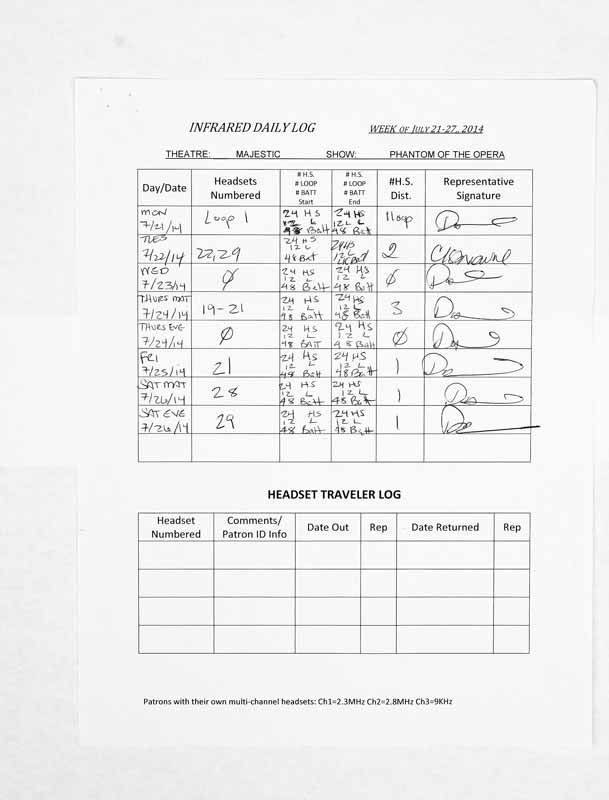 INFRARED DAILY LOG WEEK OF JULY 21-27, 2014
THEATRE: MAJESTIC SHOW: PHANTOM OF THE OPERA
Day/Date Headsets Numbered # H.S. # LOOP # BATT Start # H.S. # LOOP # BATT End #H.S. Dist. Representative Signature
MON 7/21/14 Loop 1 24 HS 12 L 48 Batt 24 HS 12 L 48 Batt 1 loop
TUES 7/22/14 22,29 24 HS 12 L 48 Bat 24 HS 12 L 48 Bat 2
WED 7/23/14 Ø 24 HS 12 L 48 Batt 24 HS 12 L 48 Batt Ø
THURS MAT 7/24/14 19-21 24 HS 12 L 48 Batt 24 HS 12 L 48 Batt 3
THURS EVE 7/24/14 Ø 24 HS 12 L 48 BATT 24 HS 12 L 48 Batt Ø
FRI 7/25/14 21 24 HS 12 L 48 Batt 24 HS 12 L 48 Batt 1
SAT MAT 7/26/14 28 24 HS 12 L 48 Batt 24 HS 12 L 48 Batt 1
SAT EVE 7/26/14 29 24 HS 12 L 48 Batt 24 HS 12 L 48 Batt 1
HEADSET TRAVELER LOG
Headset Numbered Comments/ Patron ID Info Date Out Rep Date Returned Rep
Patrons with their own multi-channel headsets: Ch1=2.3MHz Ch2=2.8MHz Ch3=9KHz